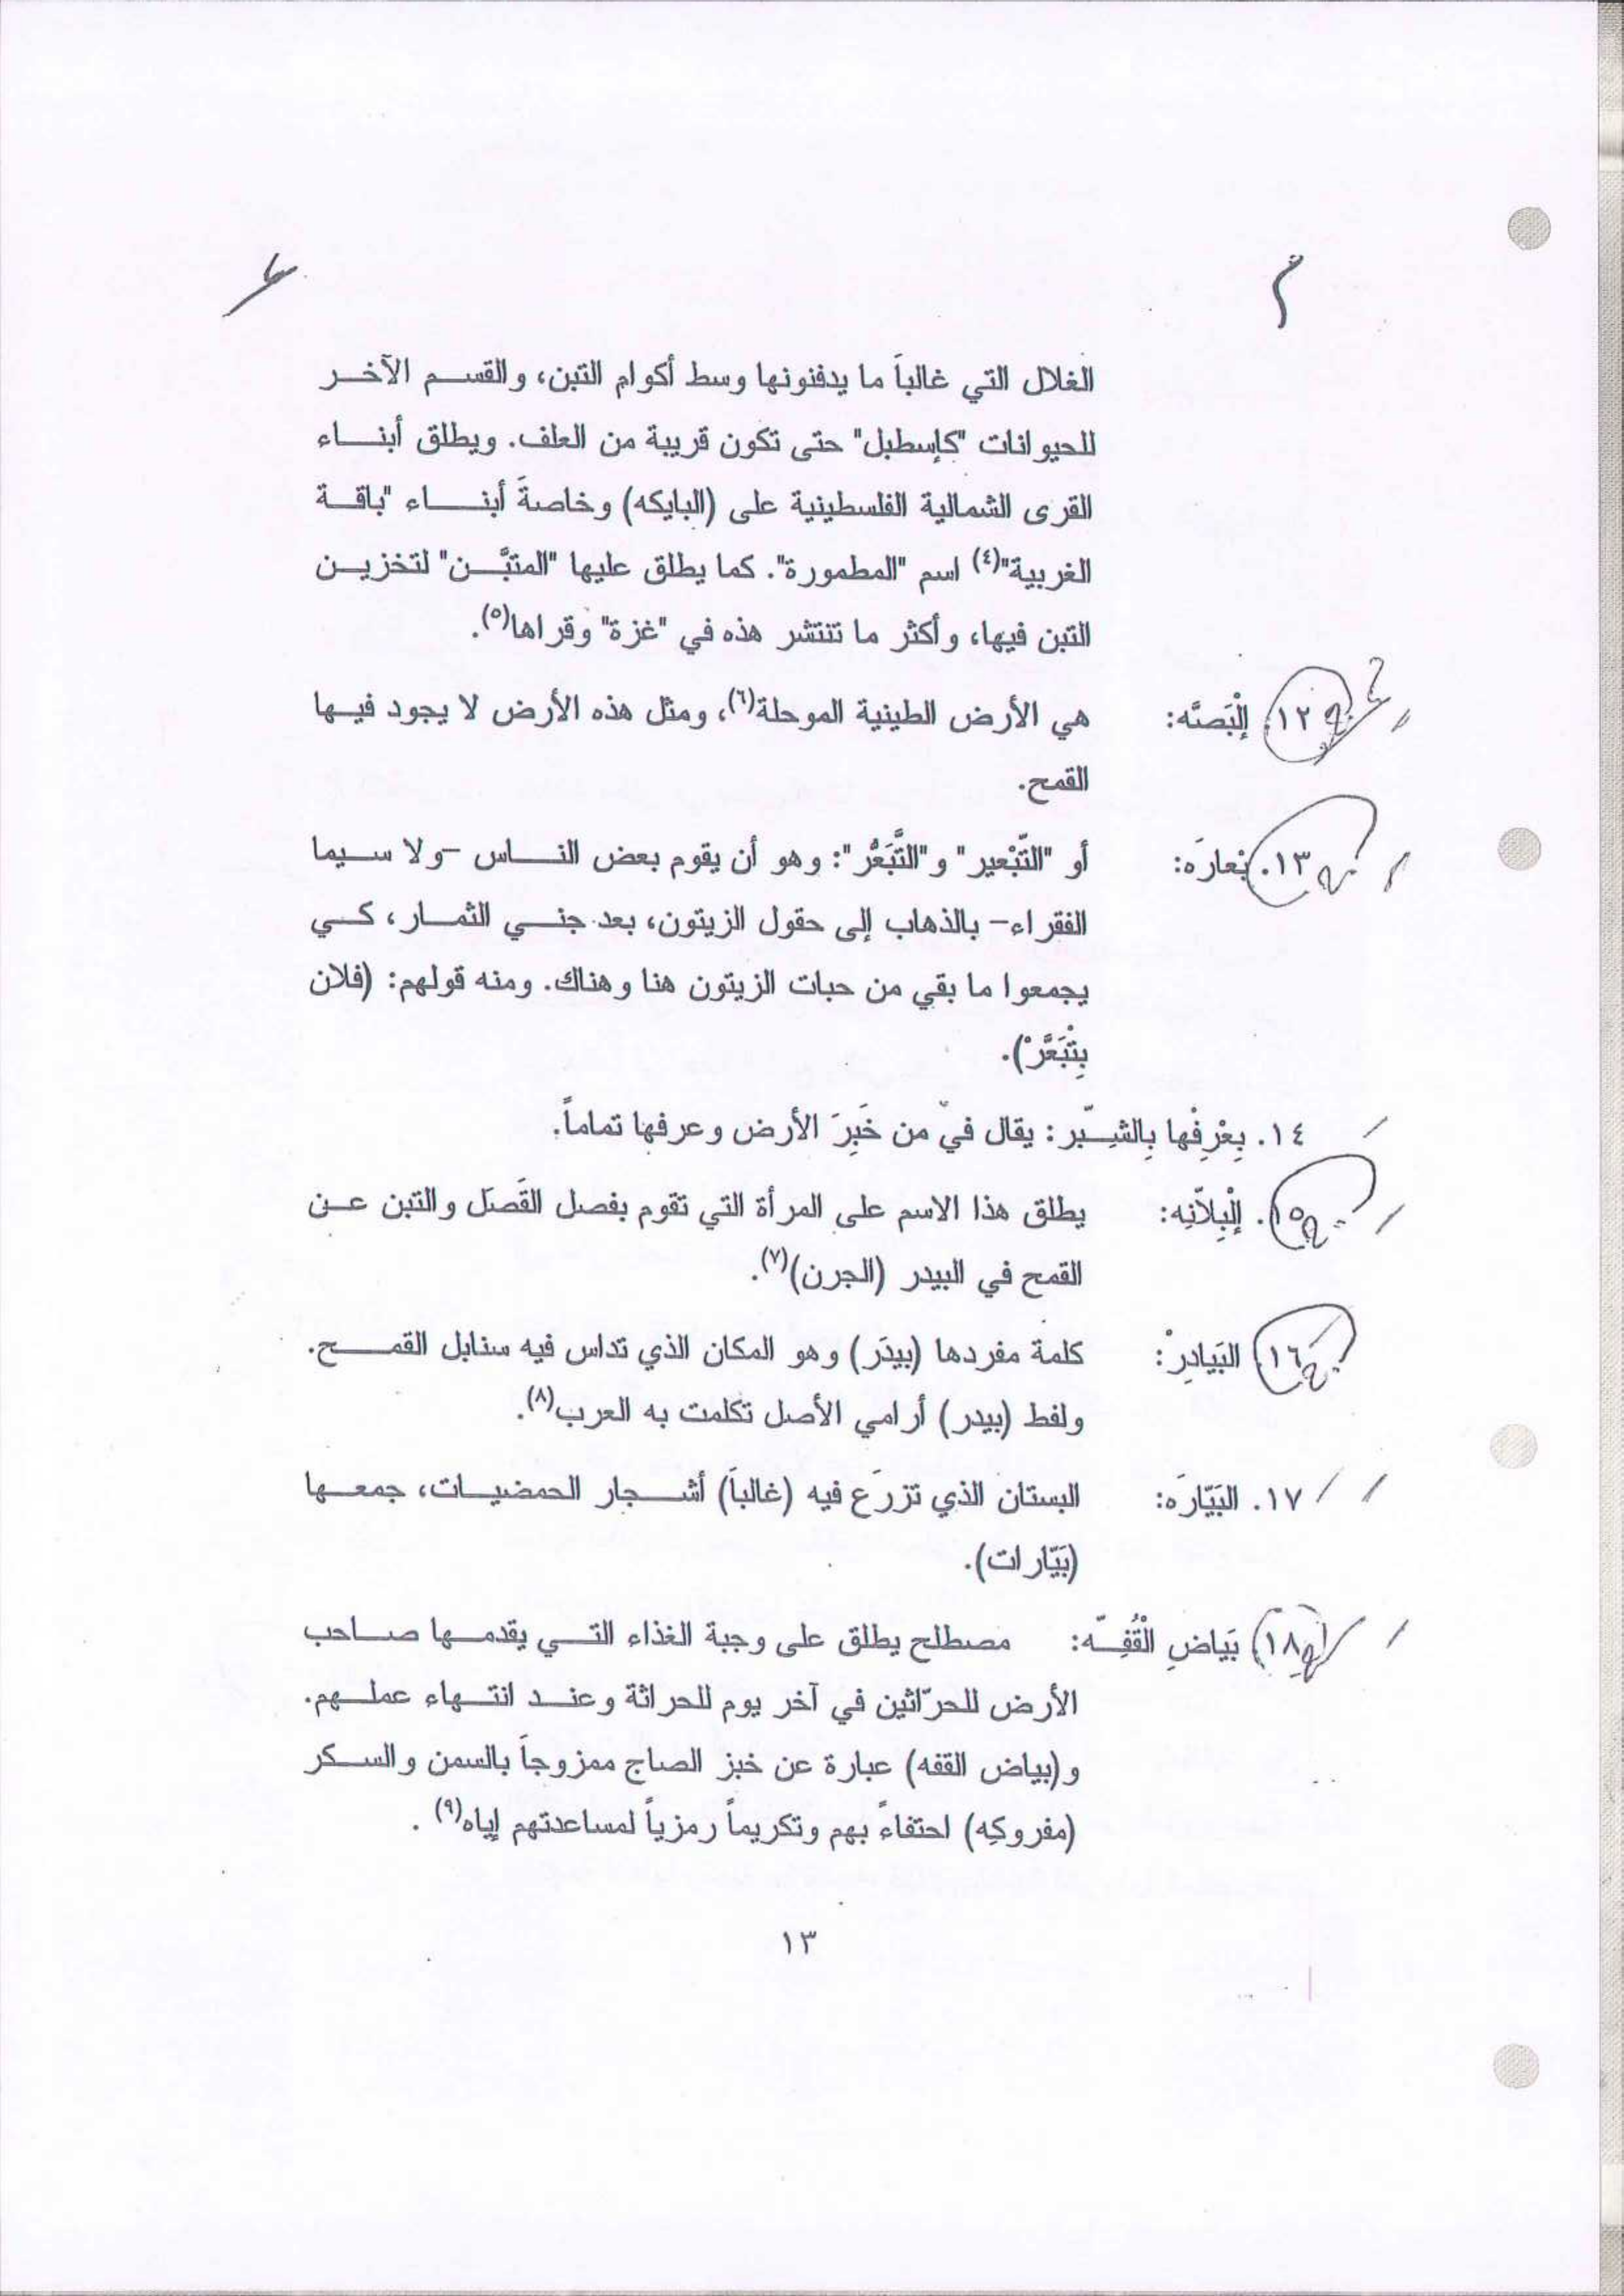 الغلال التي غالباً ما يدفنونها وسط أكوام التبن، والقسم الآخر
للحيوانات "كإسطبل" حتى تكون قريبة من العلف. ويطلق أبناء
القرى الشمالية الفلسطينية على (البايكه) وخاصةً أبناء "باقة
الغربية"(٤) اسم "المطمورة". كما يطلق عليها "المتبَّن" لتخزين
التبن فيها، وأكثر ما تنتشر هذه في "غزة" وقراها(٥).
١٢. إلْبَصَّه: هي الأرض الطينية الموحلة(٦)، ومثل هذه الأرض لا يجود فيها
القمح.
١٣. بْعارَه: أو "التّبْعير" و"التَّبَعُّر": وهو أن يقوم بعض الناس -ولا سيما
الفقراء- بالذهاب إلى حقول الزيتون، بعد جني الثمار، كي
يجمعوا ما بقي من حبات الزيتون هنا وهناك. ومنه قولهم: (فلان
بِتْبَعَّرْ).
١٤. بِعْرِفْها بِالشِبّر: يقال في من خَبِرَ الأرض وعرفها تماماً.
١٥. إلْبِلاّنِه: يطلق هذا الاسم على المرأة التي تقوم بفصل القَصَل والتبن عن
القمح في البيدر (الجرن)(٧).
١٦. البَيادِرْ: كلمة مفردها (بيدَر) وهو المكان الذي تداس فيه سنابل القمح.
ولفط (بيدر) أرامي الأصل تكلمت به العرب(٨).
١٧. البَيّارَه: البستان الذي تزرَع فيه (غالباً) أشجار الحمضيات، جمعها
(بَيّارات).
١٨. بَياضِ الْقُفِّه: مصطلح يطلق على وجبة الغذاء التي يقدمها صاحب
الأرض للحرّاثين في آخر يوم للحراثة وعند انتهاء عملهم.
و(بياض القفه) عبارة عن خبز الصاج ممزوجاً بالسمن والسكر
(مفروكِه) احتفاءً بهم وتكريماً رمزياً لمساعدتهم إياه(٩).
١٣